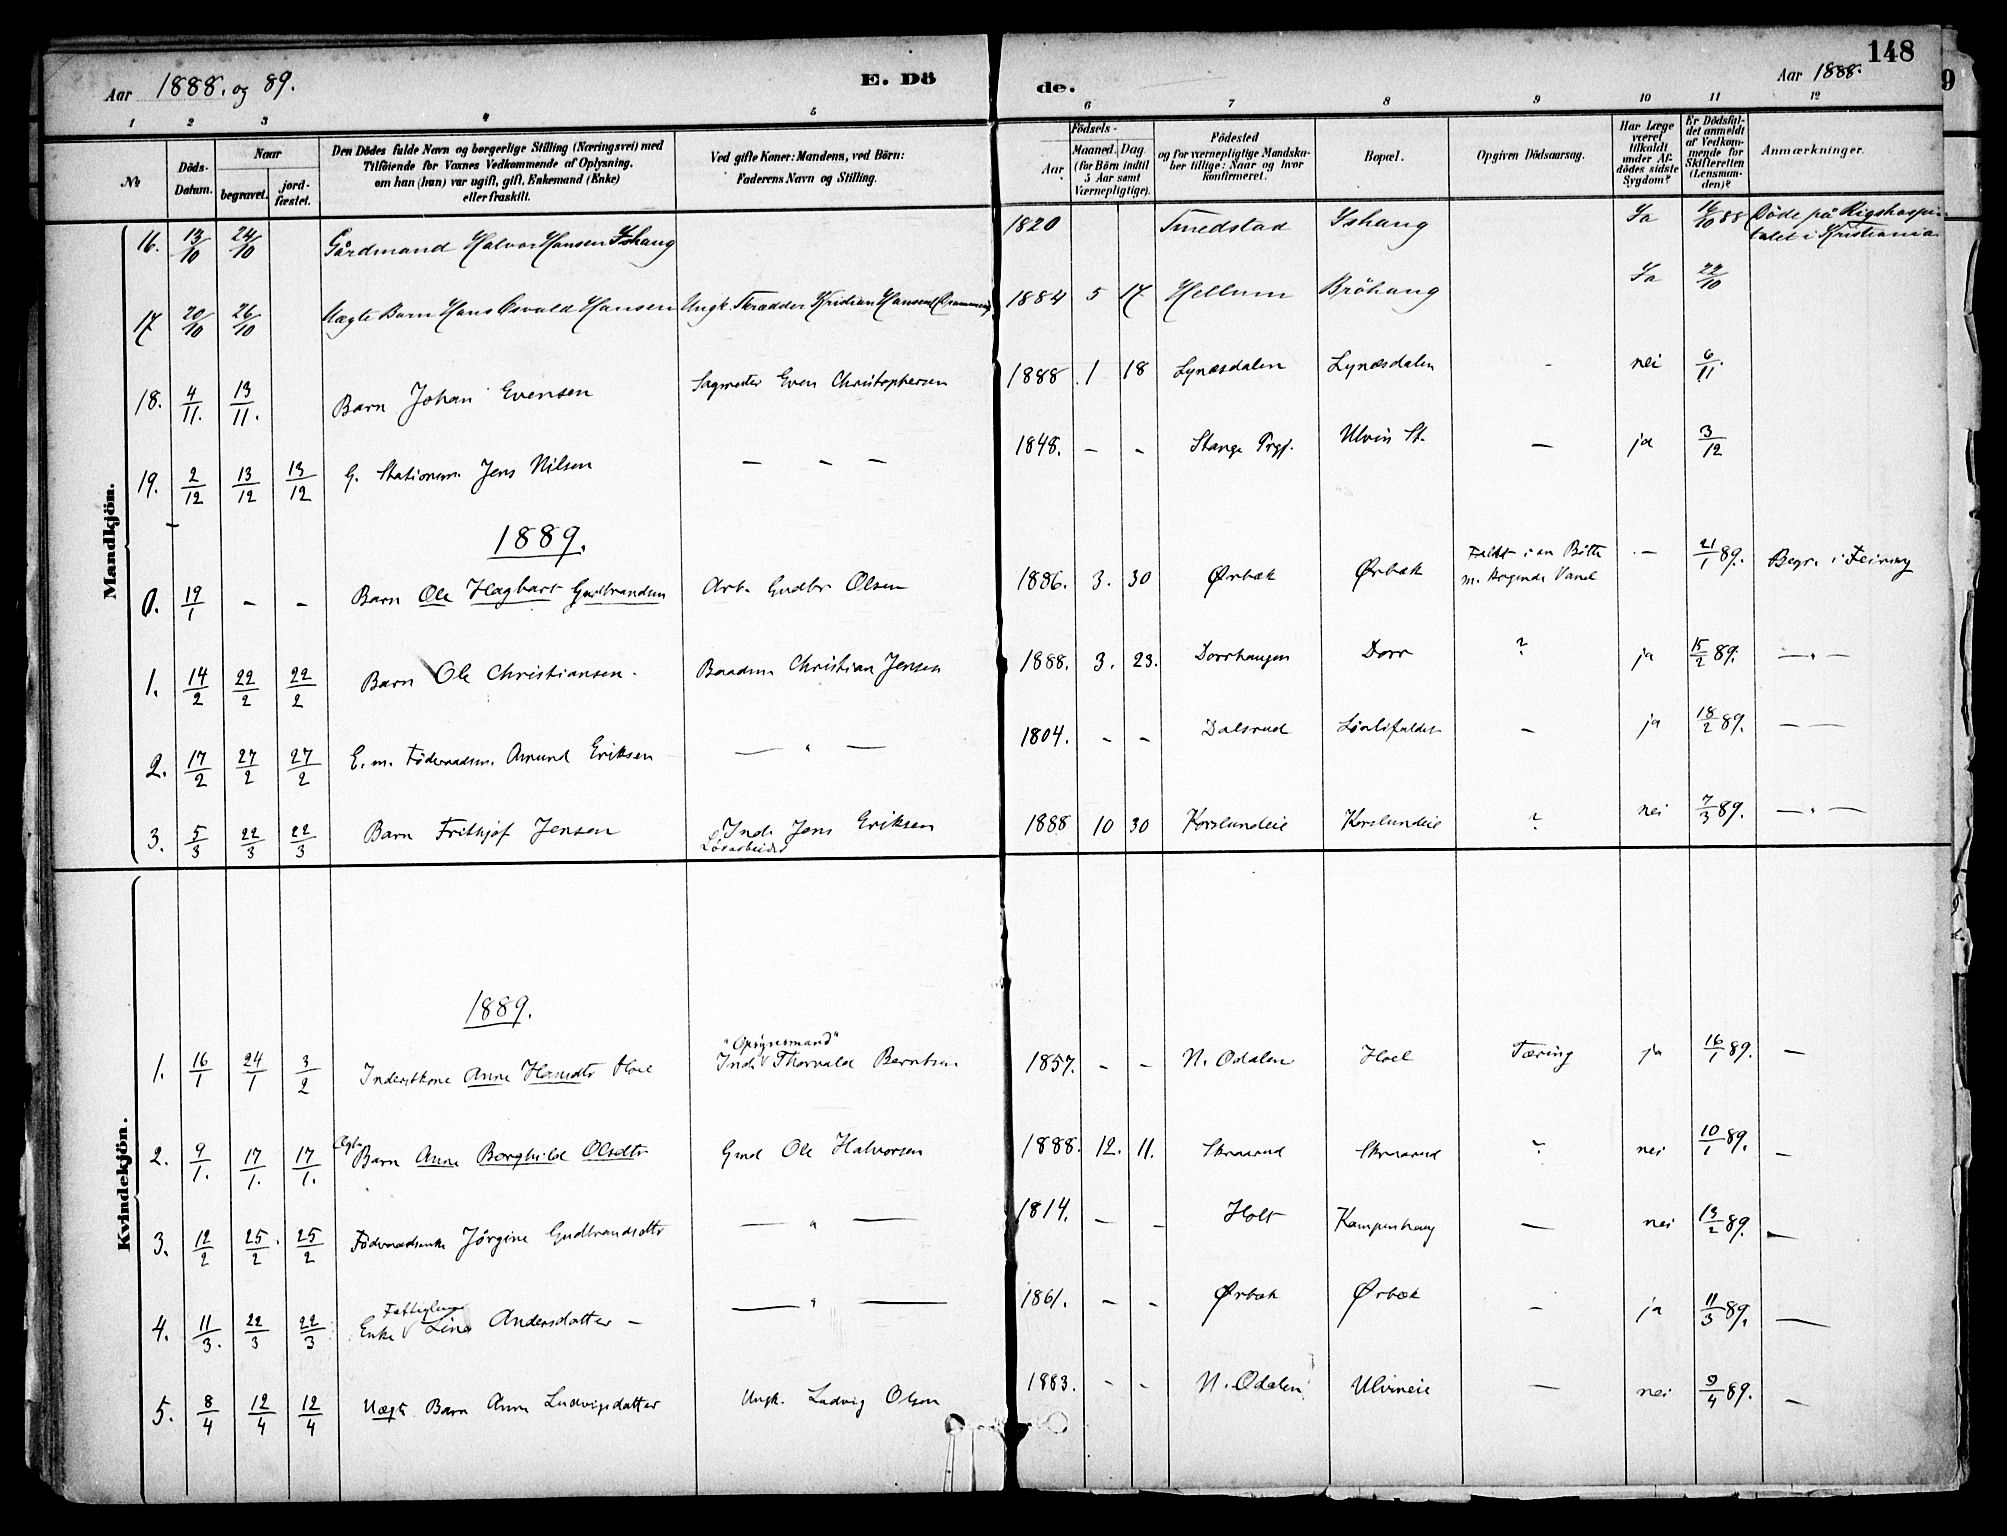 148
Aar 1888. og 89.
E. Dö
de.
Aar 1888.
1 2 3 4 5 6 7 8 9 10 11 12
№
Döds-Datum.
Naar
begravet.
jord-fæstet.
Den Dödes fulde Navn og borgerlige Stilling (Næringsvei) med
Tilföiende for Voxnes Vedkommende af Oplysning,
om han (hun) var ugift, gift, Enkemand (Enke)
eller fraskilt.
Ved gifte Koner: Mandens, ved Börn:
Faderens Navn og Stilling.
Födsels-
Aar
Maaned. Dag.
(for Börn indtil
5 Aar samt
Værnepligtige).
Födested
og for værnepligtige Mandska-
ber tillige: Naar og hvor
konfirmeret.
Bopæl.
Opgiven Dödsaarsag.
Har Læge
været
tilkaldt
under Af-
dödes sidste
Sygdom?
Er Dödsfal-
det anmeldt
af Vedkom-
mende for
Skifteretten
(Lensman-
den)?
Anmærkninger.
Mandkjön.
16. 13/10 24/10 Gårdmand Halvor Hansen Ishaug 1820 Smedstad Ishaug Ja 16/10 88 Döde på Rigshospi-
talet i Kristiania
17 20/10 26/10 Uægte Barn Hans Osvald Hansen Ungk. Skrædder Kristian Hansen 1884 5 17 Hellum Bröhaug Ja 22/10
18. 4/11. 13/11. Barn Johan Evensen Sagmester Even Christophersen 1888. 1 18 Lynæsdalen Lynæsdalen - nei 6/11.
19. 2/12 13/12 13/12 G. Stationsm. Jens Nilsen — — — 1848. - - Stange Prgj. Ulvin St. — ja 3/12
1889.
0. 19/1 - - Barn Ole Hagbart Gudbrandsen Arb. Gudbr Olsen 1886. 3. 30 Ørbæk Ørbæk Faldt i en Bötte
m. kogende Vand - 21/1 89. Begr. i Feiring
1. 14/2 22/2 22/2 Barn Ole Christiansen. Baadsm Christian Jensen 1888. 3. 23. Dorrhaugen Dorr ? ja 15/2 89. — " —
2. 17/2 27/2 27/2 E. m. Föderaadsm. Amund Eriksen — " — 1804. - - Dalsrud - ja 18/2 89. — —
3. 5/3 22/3 22/3 Barn Frithjof Jensen Ind. Jens Eriksen
Lösarbeider 1888 10 30 Korslundeie Korslundeie ? nei 7/3 89. — " —
Kvindekjön.
1889.
"Opsynsmand"
1. 16/1 24/1 3/2 Inderstkone Anne Hansdtr Hoel Inds Thorvald Berntsen 1857. - - N. Odalen Hoel Tæring ja 16/1 89. —
2. 9/1. 17/1. 17/1. Ægte Barn Anne Borghild Olsdtr Gmd Ole Halvorsen 1888. 12. 11. Skraarud Skraarud ? nei 10/1 89. —
3. 12/2 25/2. 25/2 Föderaadsenke Jørgine Gudbrandsdtr — " — 1814. - - Holt Kampenhaug — nei 13/2 89. —
Fattiglem
4. 11/3. 22/3 22/3 Enke Lina Andersdatter — — " — 1861. - - Ørbæk Ørbæk - ja 11/3 89. —
5. 8/4 12/4 12/4 Uægt. Barn Anne Ludvigsdatter Ungk. Ludvig Olsen 1883. - - N. Odalen Ulvineie — nei 9/4 89. —